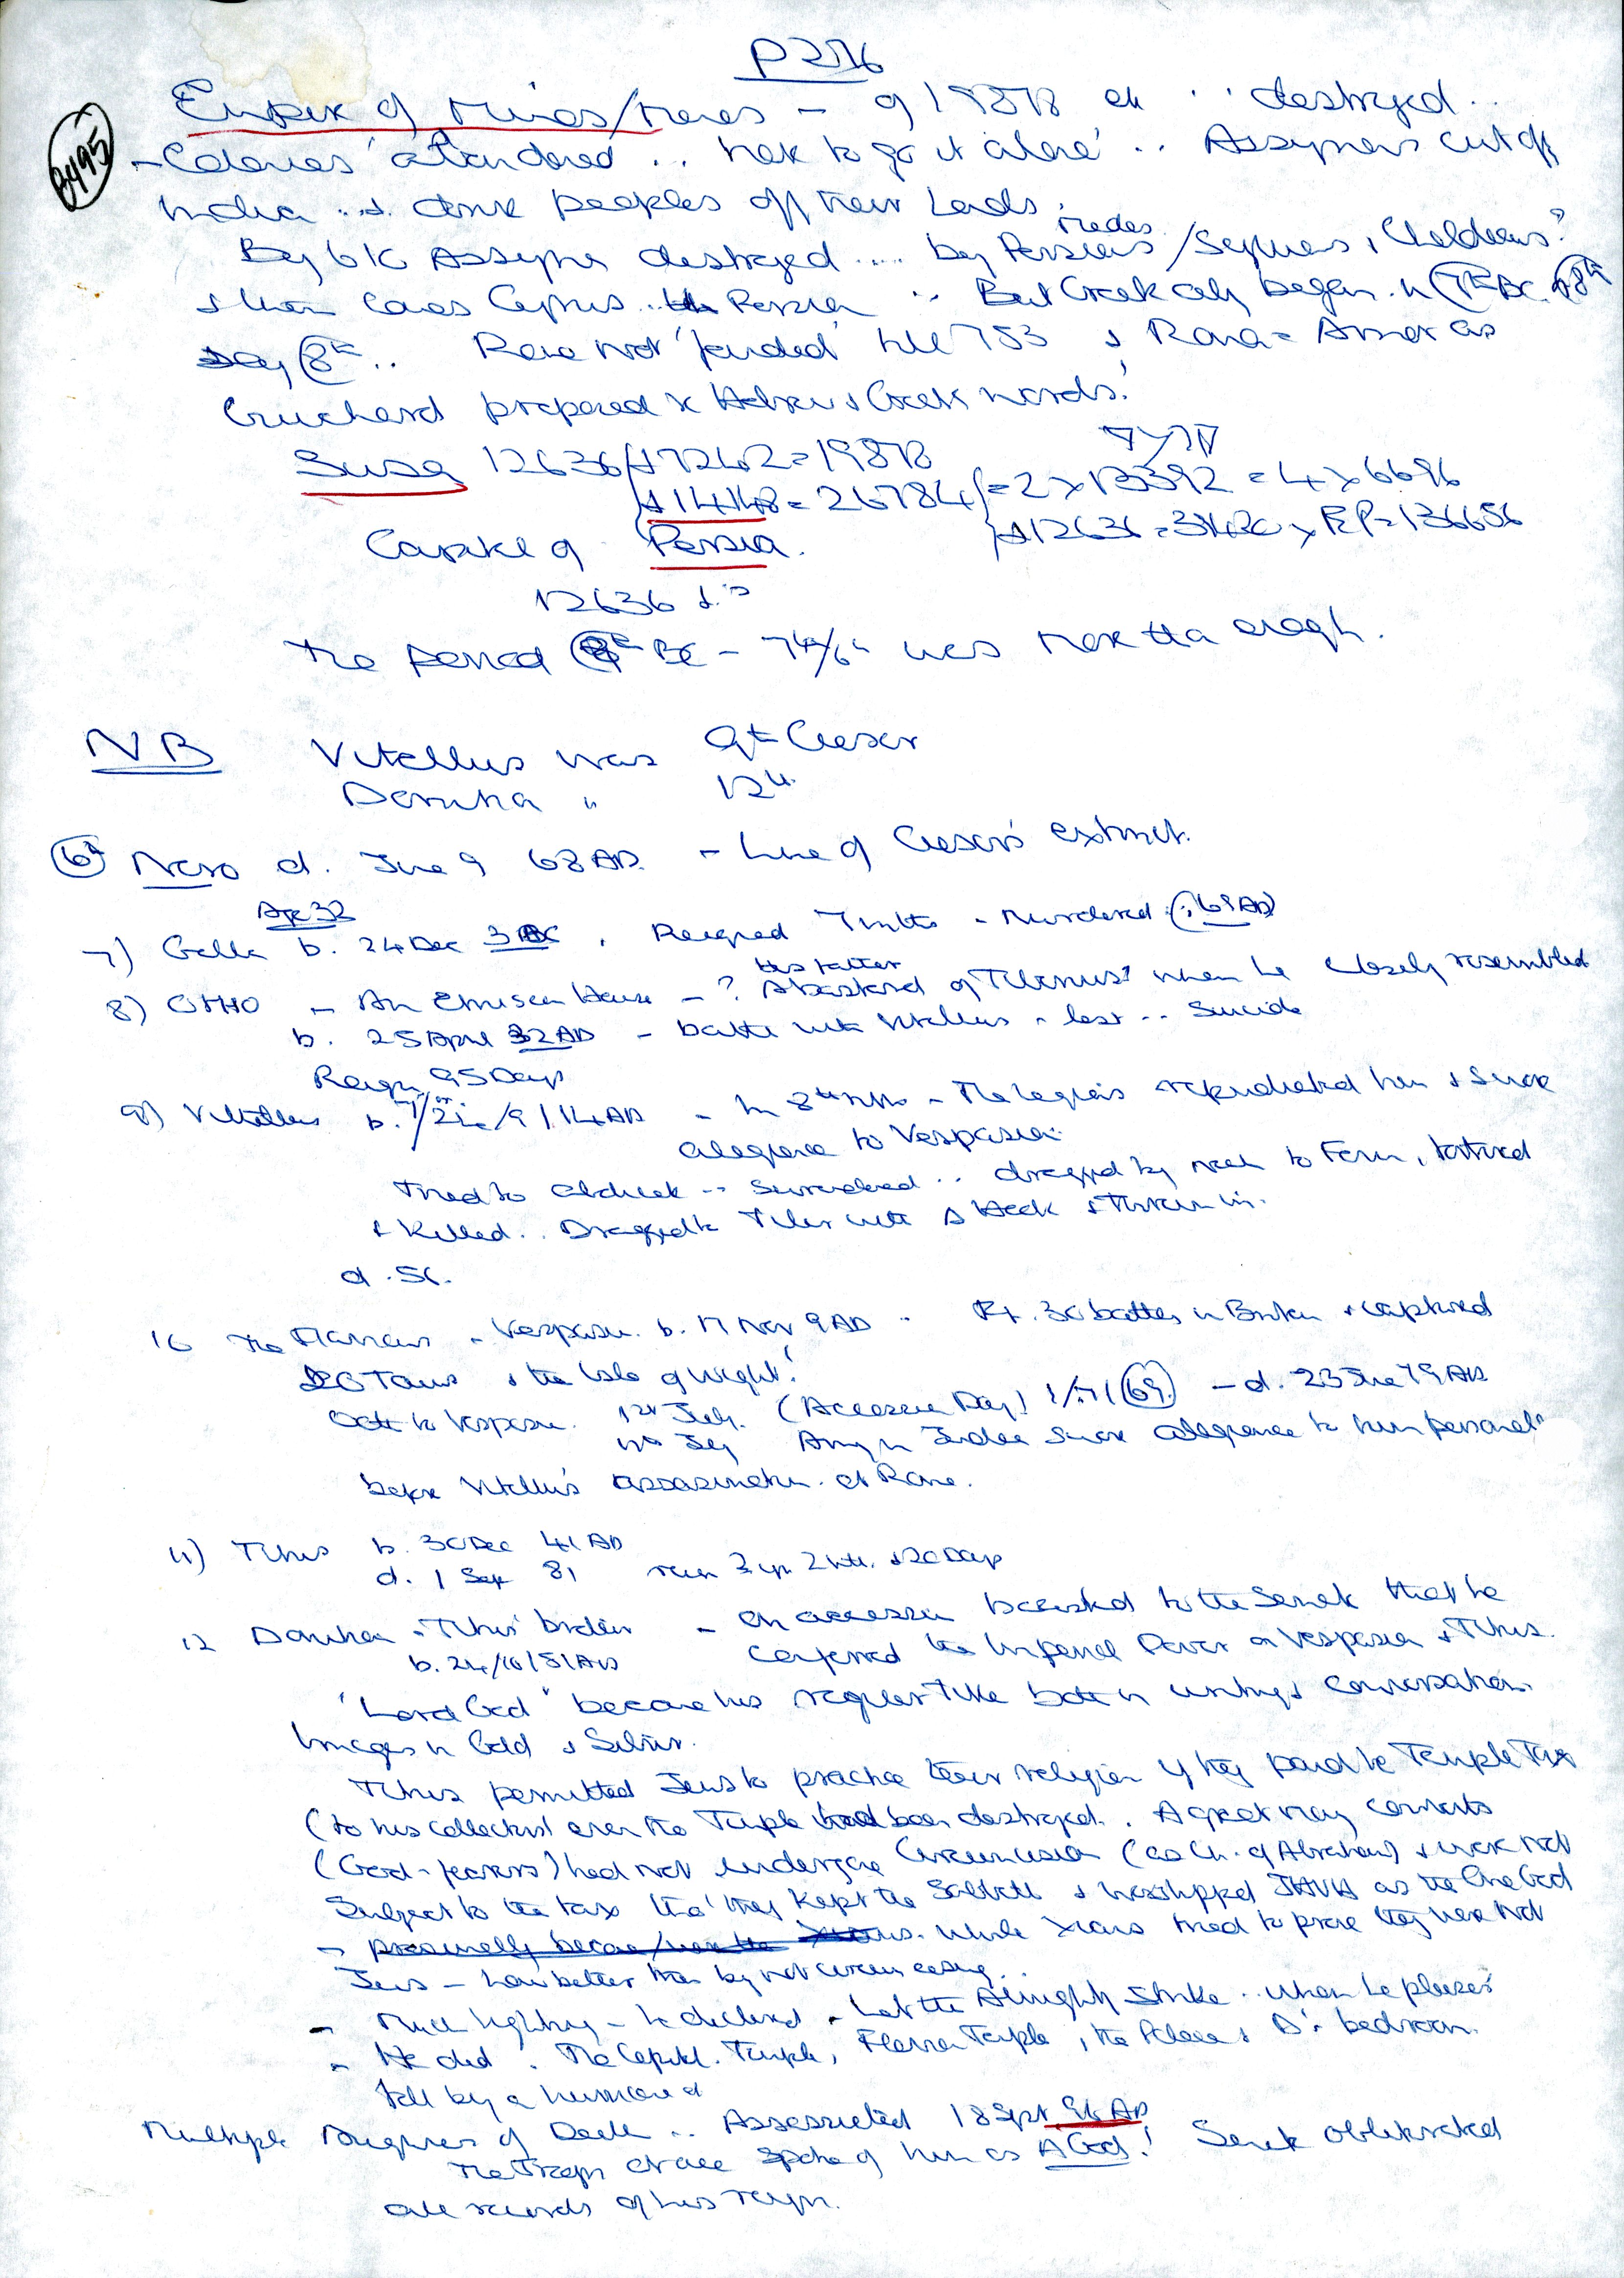 P276
B495
Empire of Minos/Menes - of 19878 etc .. destroyed ..
- Colonies 'abandoned .. have to go it alone' .. Assyrians cut off
India .. & drove peoples off their Lands.
By 610 Assyria destroyed .... by Persians / Medes / Scythians, Chaldeans?
& then comes Cyprus .. Persia .. But Greek only began in 7th BC. 8th
Say 8th .. Rome not 'founded' till 753 & Roma = Amor as
Cruchard prepared x Hebrew & Greek words!
Susa 12636 + 7242 = 19878
+ 14148 = 26784 = 2 x 13392 = 4 x 6696
+ 12636 =
Capital of Persia.
12636
The period 8th BC - 7th/6th was more than enough.
NB Vitellius was 9th Caesar
Domitian " 12th
6) Nero d. June 9 68 AD. - Line of Caesars extinct.
Age 32
7) Galba b. 24 Dec 3 BC, Reigned 7 mths - Murdered (69 AD)
8) OTHO - An Etruscan House - ? his father A bastard of Tiberius? whom he closely resembled
b. 25 April 32 AD - battle with Vitellius - lost .. Suicide
Reign 95 Days
9) Vitellius b. 7/24/9/14 AD - In 8th mth - The legions repudiated him & swore
allegiance to Vespasian.
Tried to abdicate .. surrendered .. dragged by neck to Forum, tortured
& killed .. Dragged to Tiber with a Hook & thrown in.
d. 56.
10 The Flavians - Vespasian b. 17 Nov 9 AD .. Ft. 30 battles in Britain & captured
20 Towns & the Isle of Wight!
Oath to Vespasian. 1st July. (Accession Day) 1/7/69 - d. 23 June 79 AD
11th July Army in Judea swore allegiance to him personally
before Vitellius's assassination at Rome.
11) Titus b. 30 Dec 41 AD
d. 1 Sept 81 reign 2 yr 2 mth. & 20 Days
12 Domitian - Titus' brother - On accession boasted to the Senate that he
b. 24/10/51 AD conferred the Imperial Power on Vespasian & Titus.
'Lord God' became his regular title both in writing & conversation.
Images in Gold & Silver.
Titus permitted Jews to practice their religion if they paid the Temple Tax
(to his collectors) even the Temple had been destroyed. A great many converts
(God-fearers) had not undergone Circumcision (as Ch. of Abraham) & were not
Subject to the tax tho' they kept the Sabbath & worshipped JHVH as the One God
- presumably became/were the Xtians. While Xians tried to prove they were not
Jews - how better than by not circumcising ..
- Much lightning - he declared - Let the Almighty strike .. when he pleases
- He did! The Capitol. Temple, Flavian Temple, the Palace & D's bedroom.
Told by a
Multiple Auguries of Death .. Assassinated 18 Sept 96 AD
The Troops at once spoke of him as A God! Senate obliterated
all records of his reign.